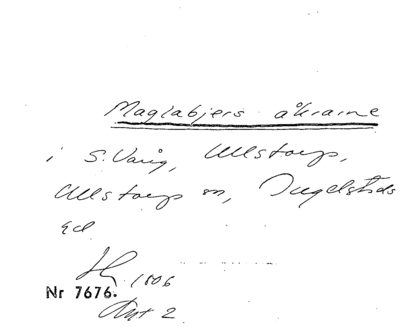 Maglabjers åkrarne
i S. Vång, Ullstorp,
Ullstorps sn, Ingelstads
hd
1806
Nr 7676.
Akt 2